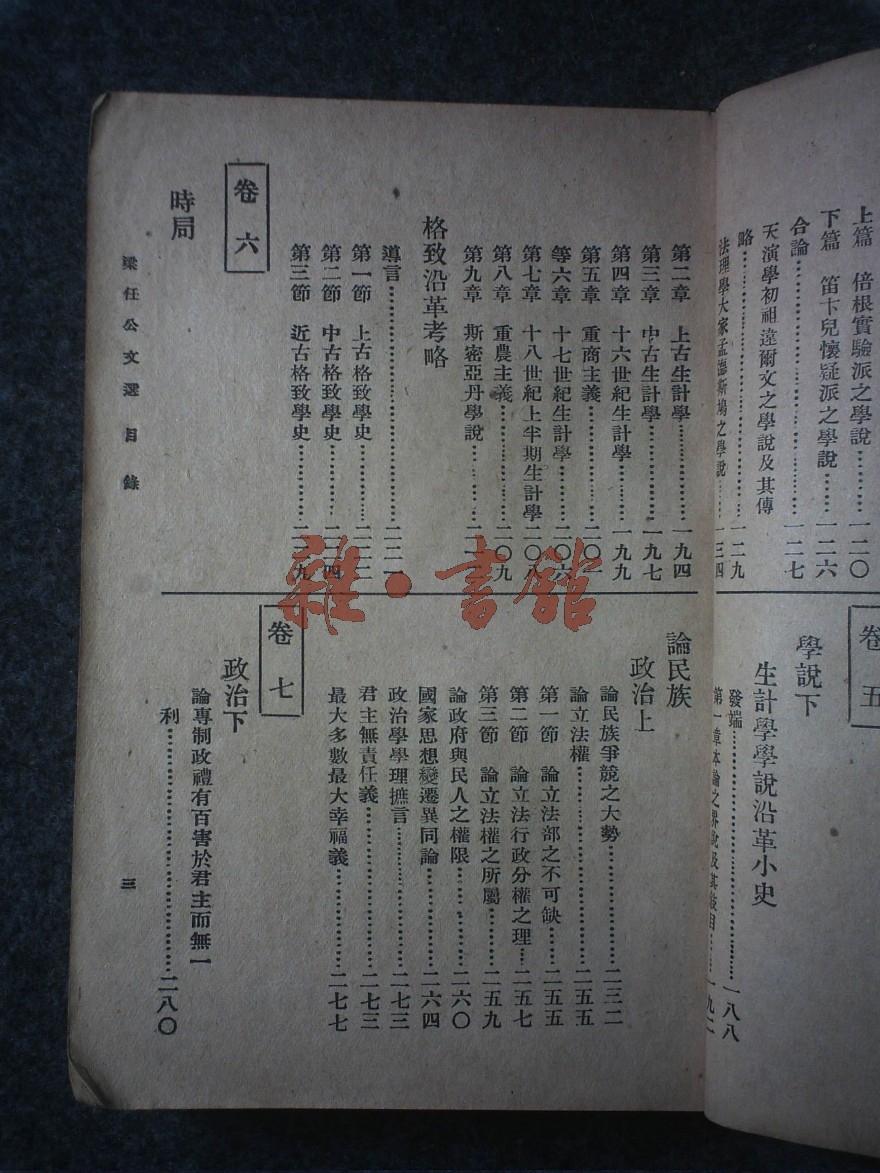 上篇　倍根實驗派之學說………一二〇
下篇　笛卞兒懷疑派之學說………一二六
合論………一二七
天演學初祖達爾文之學說及其傳
略………一二九
法理學大家孟德斯鳩之學說………一三四
卷五
學說下
生計學學說沿革小史
發端………一八八
第一章本論之界說及其敍目………一九二
第二章　上古生計學………一九四
第三章　中古生計學………一九七
第四章　十六世紀生計學………一九九
第五章　重商主義………二〇一
等六章　十七世紀生計學………二〇六
第七章　十八世紀上半期生計學…二〇八
第八章　重農主義………二〇九
第九章　斯密亞丹學說………
格致沿革考略
導言………二二一
第一節　上古格致學史………二二二
第二節　中古格致學史………二二四
第三節　近古格致學史………二二九
卷六
時局
論民族
政治上
論民族爭競之大勢………二三二
論立法權………二五五
第一節　論立法部之不可缺………二五五
第二節　論立法行政分權之理…二五七
第三節　論立法權之所屬………二五九
論政府與民人之權限………二六〇
國家思想變遷異同論………二六四
政治學學理摭言………二七三
君主無責任義………二七三
最大多數最大幸福義………二七七
卷七
政治下
論專制政禮有百害於君主而無一
利………二八〇
梁任公文選目錄
三
雜·書館